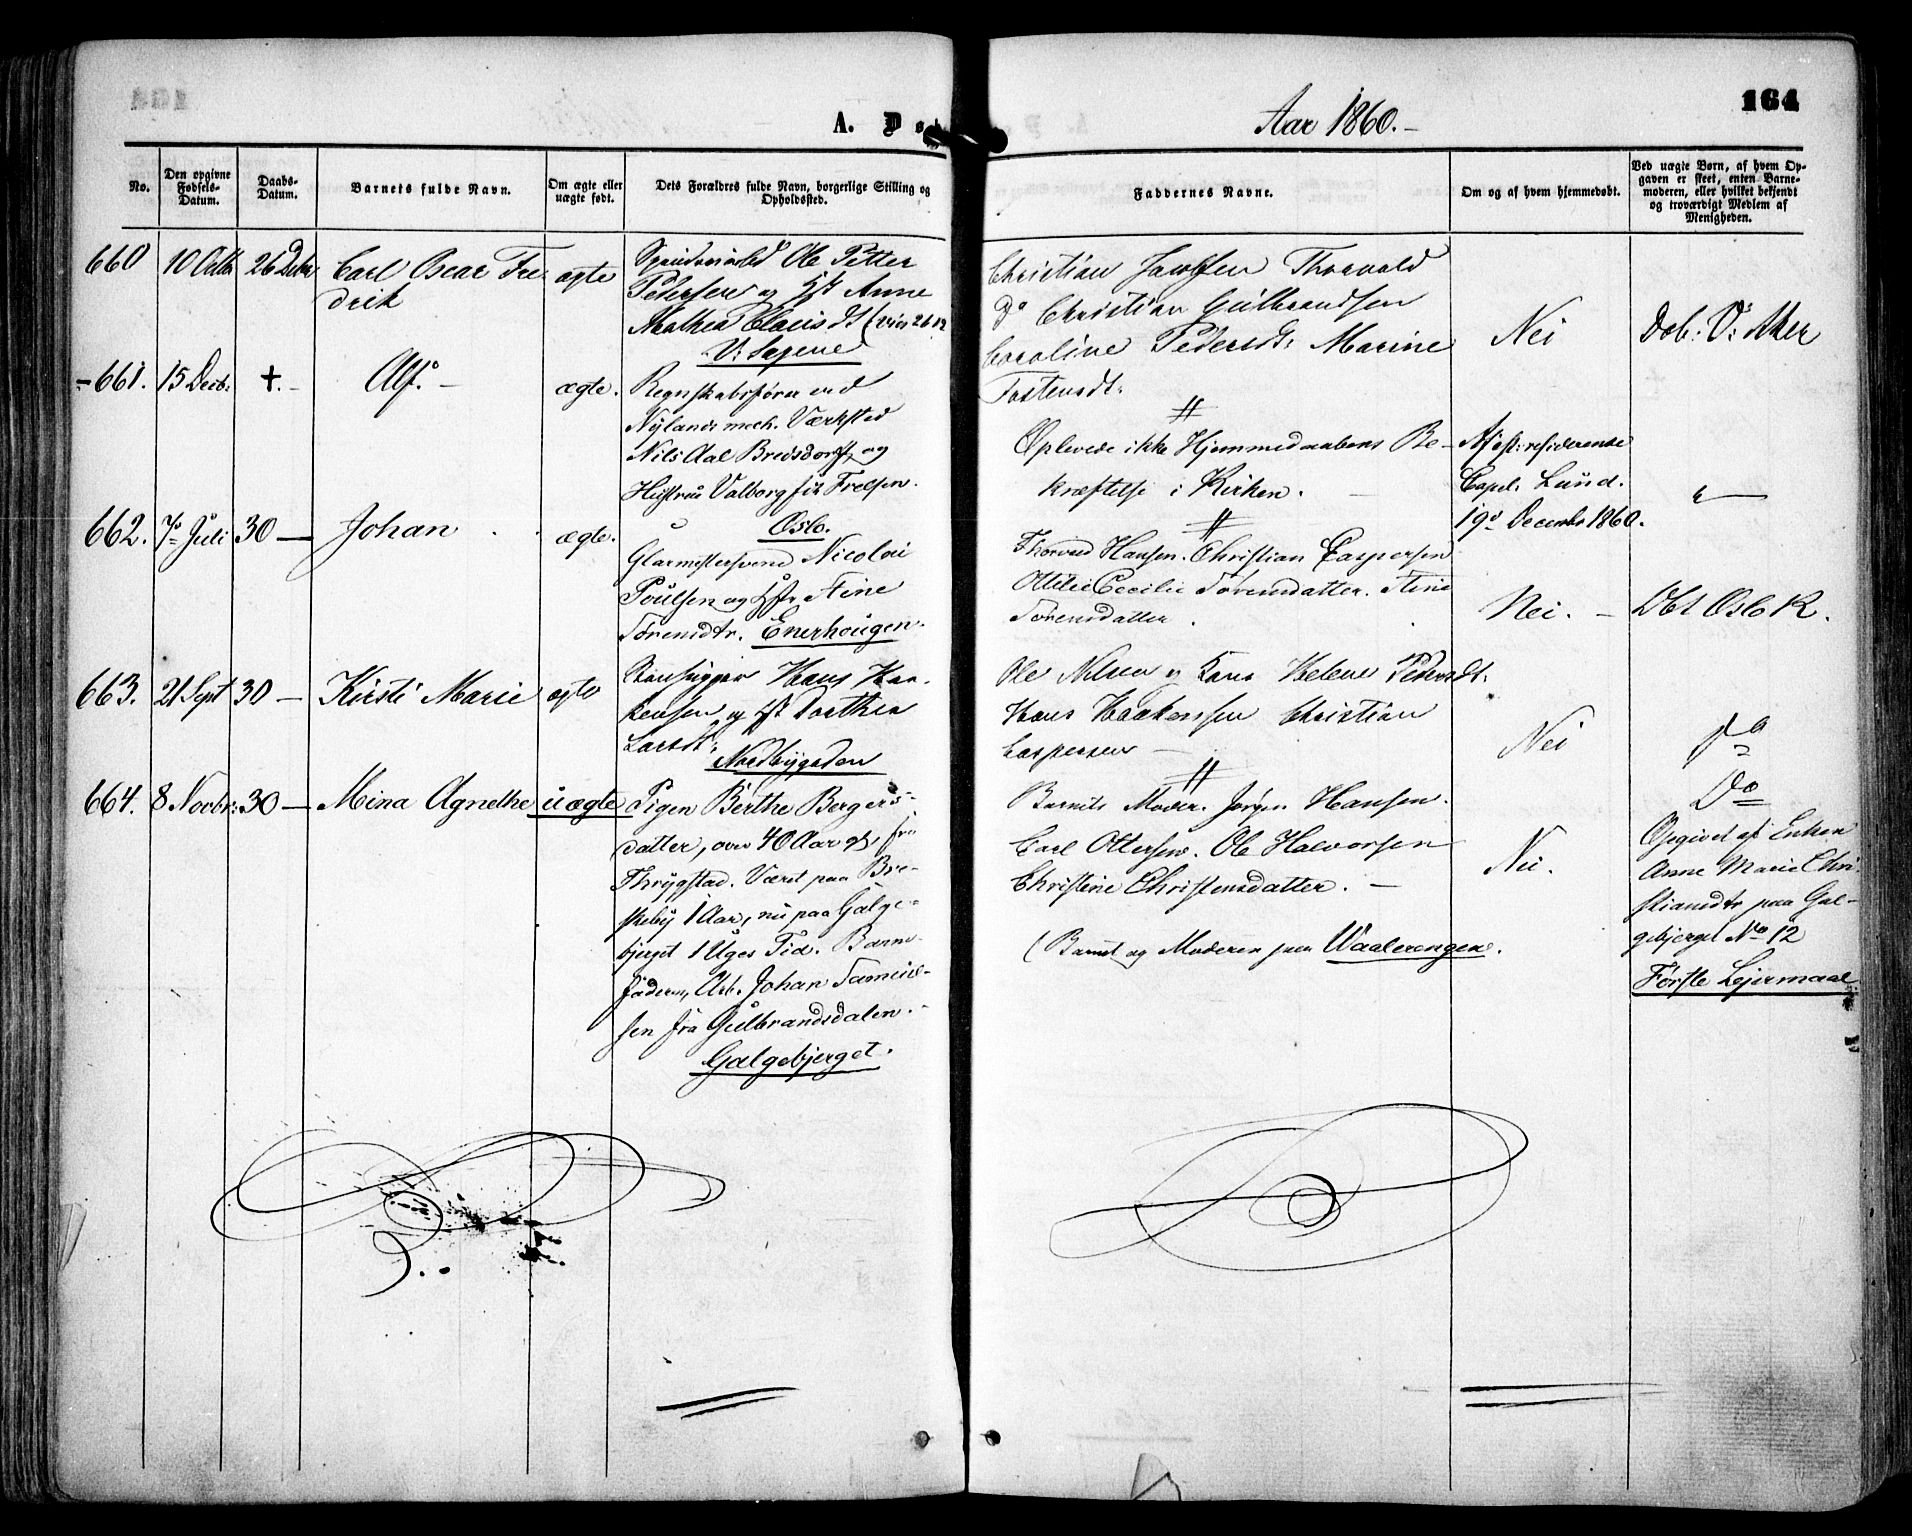 A. D
Aar 1860.-
164
No.
Den opgivne Fødsels-Datum.
Daabs-Datum.
Barnets fulde Navn.
Om ægte eller uægte født.
Dets Forældres fulde Navn, borgerlige Stilling og Opholdssted.
Faddernes Navne.
Om og af hvem hjemmedøbt.
Ved uægte Børn, af hvem Opgaven er skeet, enten Barnemoderen, eller hvilket bekjendt og troværdigt Medlem af Menigheden.
660
10 Octbr
26 Debr
Carl Oscar Fre
drik
ægte
Ole Petter
Pedersen og Hst Anne
Mathea Clausdt
V: Sagene
Christian Thorvald
Do Christian Gulbrandsen
Caroline Pedersdt: Marine
Tostensdt:
Nei
Døb: V: Aker
-661.
15 Decb:
+.-
Alf. -
ægte.
Regnskabsfører ved
Nylands mech. Værksted
Nils Aal Bredsdorff, og
Hustrue Valborg Frelsen.
Oslo.
Oplevede ikke Hjemmedaabens Be-
kræftelse i Kirken.
Af residerende
Capel. Lund.
19d December 1860.
662.
7 Juli
30 —
Johan
ægte.
Glarmestersvend Nicolai
Poulsen og Hstr Nine
Sørensdtr. Enerhougen.
Thorvald Hansen. Christian Caspersen
Ottilie Cecilie Sørensdatter. Stine
Sørensdatter
Nei. -
Dbt Oslo K.
663.
21 Sept
30 —
Kirsti Marie
ægte
Hans Haa-
kensen og Hst Dorthea
Larsdt:
Nordbygaden
Ole Nilsen og Helene Pedersdt:
Hans Haakensen Christian
Caspersen —
Nei
Do
664.
8 Novbr:
30 —
Mina Agnethe
uægte
Pigen Berthe Bergers-
datter, over 40 Aar gl, fra
Thrygstad. Været paa Bre-
skeby 1 Aar, nu paa Galge-
bjerget 1 Uges Tid. Barne-
faderen, Arb. Johan Samuel-
sen fra Gulbrandsdalen.
Galgebjerget.
Barnets Moder. Jørgen Hansen.
Carl Ottersen. Ole Halvorsen
Christine Christensdatter. —
(Barnet og Moderen paa Waalerengen.
Nei.
Do
Opgivet af Enken
Anne Marie Chri-
stiansdtr paa Gal-
gebjerget No 12
Første Lejermaal